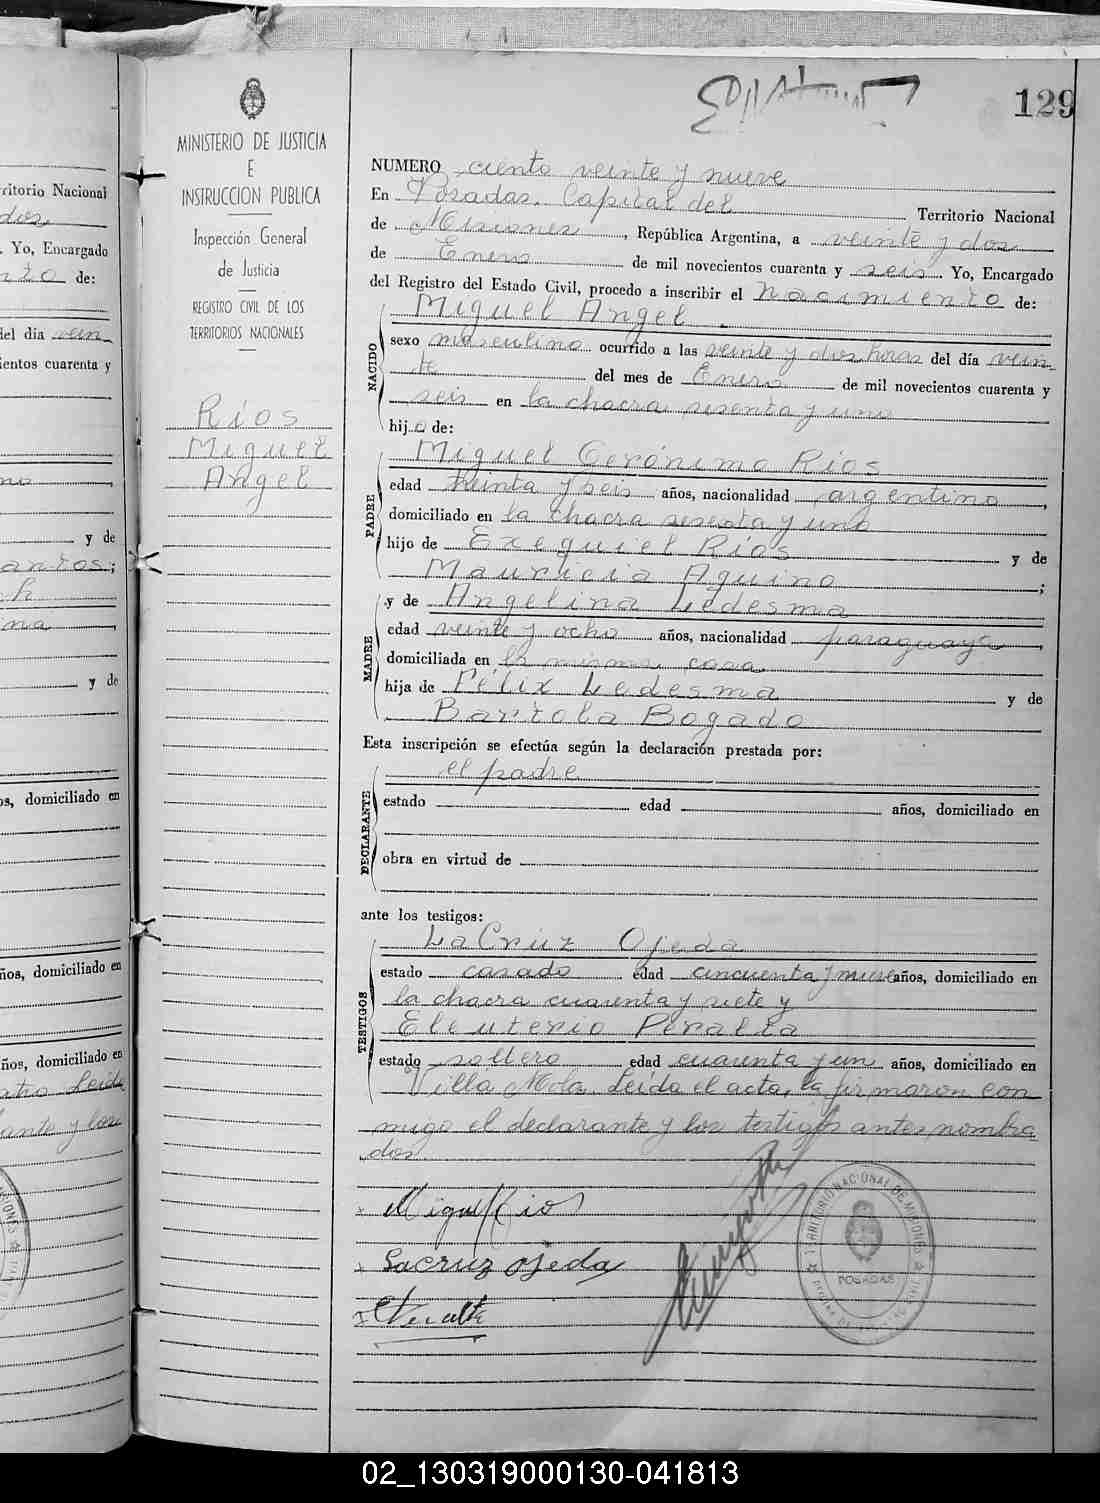 129
MINISTERIO DE JUSTICIA
E
INSTRUCCION PUBLICA
Inspección General
de Justicia
REGISTRO CIVIL DE LOS
TERRITORIOS NACIONALES
Ríos
Miguel
Angel
NUMERO ciento veinte y nueve
En Posadas, Capital del Territorio Nacional
de Misiones, República Argentina, a veinte y dos
de Enero de mil novecientos cuarenta y seis. Yo, Encargado
del Registro del Estado Civil, procedo a inscribir el nacimiento de:
NACIDO
Miguel Angel.
sexo masculino ocurrido a las veinte y dos horas del día vein
te del mes de Enero de mil novecientos cuarenta y
seis en la chacra sesenta y uno
hijo de:
PADRE
Miguel Gerónimo Ríos
edad treinta y seis años, nacionalidad argentino,
domiciliado en la chacra sesenta y uno
hijo de Exequiel Ríos y de
Mauricia Aquino;
MADRE
y de Angelina Ledesma
edad veinte y ocho años, nacionalidad paraguaya,
domiciliada en la misma casa,
hija de Félix Ledesma y de
Bartola Bogado
Esta inscripción se efectúa según la declaración prestada por:
DECLARANTE
el padre
estado edad años, domiciliado en
obra en virtud de
ante los testigos:
TESTIGOS
LaCruz Ojeda
estado casado edad cincuenta y nueve años, domiciliado en
la chacra cuarenta y siete y
Eleuterio Peralta
estado soltero edad cuarenta y un años, domiciliado en
Villa Mola. Leída el acta, la firmaron con
migo el declarante y los testigos antes nombra
dos.
Miguel Rios
Lacruz Ojeda
EPeralta
TERRITORIO NACIONAL DE MISIONES
POSADAS
ritorio Nacional
dos
. Yo, Encargado
nto de:
del día vein
ientos cuarenta y
no,
y de
antos;
h
na,
y de
os, domiciliado en
ños, domiciliado en
ños, domiciliado en
Leída
ante y los
02_130319000130-041813